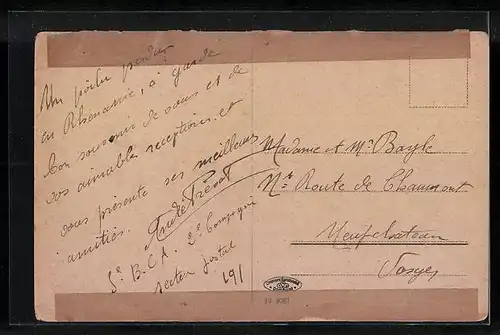 Un poilu perdu
en Rhénanie, a gardé
bon souvenir de vous et de
vos aimables receptions et
vous présente ses meilleures
amitiés.
André Prevot
5e B.C.A. 2e Compagnie
secteur postal
191
Madame et Mr Bayle
Route de Chaumont
Neufchateau
Vosges